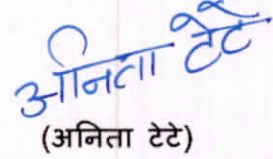 अनिता टेटे
(अनिता टेटे)